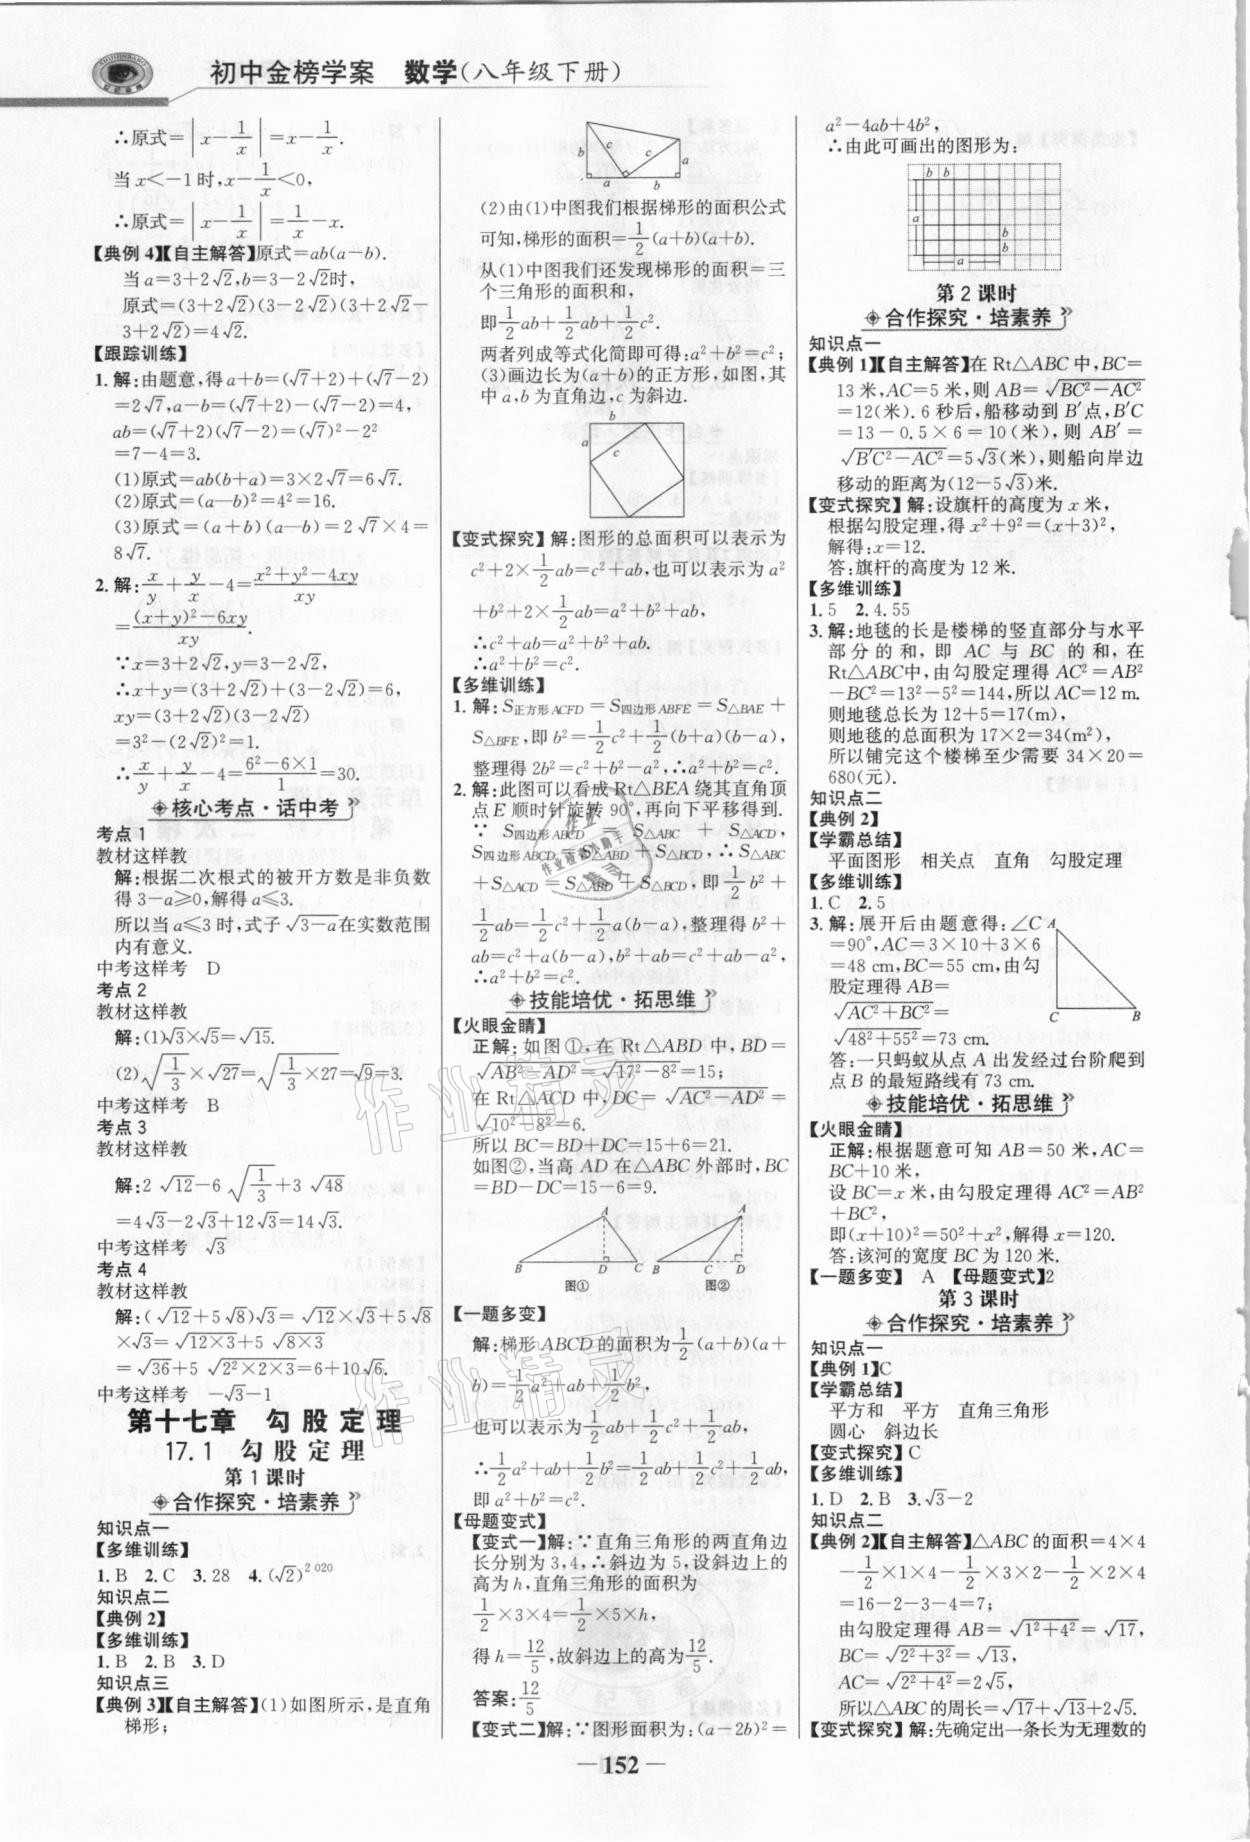 初中金榜学案 数学(八年级下册)
∴原式=|x-1/x|=x-1/x.
当x<-1时,x-1/x<0,
∴原式=|x-1/x|=1/x-x.
【典例4】【自主解答】原式=ab(a-b).
当a=3+2√2,b=3-2√2时,
原式=(3+2√2)(3-2√2)(3+2√2-
3+2√2)=4√2.
【跟踪训练】
1.解:由题意,得a+b=(√7+2)+(√7-2)
=2√7,a-b=(√7+2)-(√7-2)=4,
ab=(√7+2)(√7-2)=(√7)²-2²
=7-4=3.
(1)原式=ab(b+a)=3×2√7=6√7.
(2)原式=(a-b)²=4²=16.
(3)原式=(a+b)(a-b)=2√7×4=
8√7.
2.解:x/y+y/x-4=(x²+y²-4xy)/xy
=((x+y)²-6xy)/xy.
∵x=3+2√2,y=3-2√2,
∴x+y=(3+2√2)+(3-2√2)=6,
xy=(3+2√2)(3-2√2)
=3²-(2√2)²=1.
∴x/y+y/x-4=(6²-6×1)/1=30.
核心考点·话中考
考点1
教材这样教
解:根据二次根式的被开方数是非负数
得3-a≥0,解得a≤3.
所以当a≤3时,式子√(3-a)在实数范围
内有意义.
中考这样考 D
考点2
教材这样教
解:(1)√3×√5=√15.
(2)√(1/3)×√27=√(1/3×27)=√9=3.
中考这样考 B
考点3
教材这样教
解:2√12-6√(1/3)+3√48
=4√3-2√3+12√3=14√3.
中考这样考 √3
考点4
教材这样教
解:(√12+5√8)√3=√12×√3+5√8
×√3=√(12×3)+5√(8×3)
=√36+5√(2²×2×3)=6+10√6.
中考这样考 -√3-1
第十七章 勾股定理
17.1 勾股定理
第1课时
合作探究·培素养
知识点一
【多维训练】
1.B 2.C 3.28 4.(√2)²⁰²⁰
知识点二
【典例2】
【多维训练】
1.B 2.B 3.D
知识点三
【典例3】【自主解答】(1)如图所示,是直角
梯形;
b c c a
a b
(2)由(1)中图我们根据梯形的面积公式
可知,梯形的面积=1/2(a+b)(a+b).
从(1)中图我们还发现梯形的面积=三
个三角形的面积和,
即1/2ab+1/2ab+1/2c².
两者列成等式化简即可得:a²+b²=c²;
(3)画边长为(a+b)的正方形,如图,其
中a,b为直角边,c为斜边.
b
a c
【变式探究】解:图形的总面积可以表示为
c²+2×1/2ab=c²+ab,也可以表示为a²
+b²+2×1/2ab=a²+b²+ab,
∴c²+ab=a²+b²+ab,
∴a²+b²=c².
【多维训练】
1.解:S正方形ACFD=S四边形ABFE=S△BAE+
S△BFE,即b²=1/2c²+1/2(b+a)(b-a),
整理得2b²=c²+b²-a²,∴a²+b²=c².
2.解:此图可以看成Rt△BEA绕其直角顶
点E顺时针旋转90°,再向下平移得到.
∵S四边形ABCD=S△ABC+S△ACD,
S四边形ABCD=S△ABD+S△BCD,∴S△ABC
+S△ACD=S△ABD+S△BCD,即1/2b²+
1/2ab=1/2c²+1/2a(b-a),整理得b²+
ab=c²+a(b-a),b²+ab=c²+ab-a²,
∴a²+b²=c².
技能培优·拓思维
【火眼金睛】
正解:如图①,在Rt△ABD中,BD=
√(AB²-AD²)=√(17²-8²)=15;
在Rt△ACD中,DC=√(AC²-AD²)=
√(10²-8²)=6.
所以BC=BD+DC=15+6=21.
如图②,当高AD在△ABC外部时,BC
=BD-DC=15-6=9.
A A
B D C B C D
图① 图②
【一题多变】
解:梯形ABCD的面积为1/2(a+b)(a+
b)=1/2a²+ab+1/2b²,
也可以表示为1/2ab+1/2ab+1/2c²,
∴1/2a²+ab+1/2b²=1/2ab+1/2c²+1/2ab,
即a²+b²=c².
【母题变式】
【变式一】解:∵直角三角形的两直角边
长分别为3,4,∴斜边为5,设斜边上的
高为h,直角三角形的面积为
1/2×3×4=1/2×5×h,
得h=12/5,故斜边上的高为12/5.
答案:12/5
【变式二】解:∵图形面积为:(a-2b)²=
a²-4ab+4b²,
∴由此可画出的图形为:
b b
a
b
b
a
第2课时
合作探究·培素养
知识点一
【典例1】【自主解答】在Rt△ABC中,BC=
13米,AC=5米,则AB=√(BC²-AC²)
=12(米).6秒后,船移动到B′点,B′C
=13-0.5×6=10(米),则AB′=
√(B′C²-AC²)=5√3(米),则船向岸边
移动的距离为(12-5√3)米.
【变式探究】解:设旗杆的高度为x米,
根据勾股定理,得x²+9²=(x+3)²,
解得:x=12.
答:旗杆的高度为12米.
【多维训练】
1.5 2.4.55
3.解:地毯的长是楼梯的竖直部分与水平
部分的和,即AC与BC的和,在
Rt△ABC中,由勾股定理得AC²=AB²
-BC²=13²-5²=144,所以AC=12 m.
则地毯总长为12+5=17(m),
则地毯的总面积为17×2=34(m²),
所以铺完这个楼梯至少需要34×20=
680(元).
知识点二
【典例2】
【学霸总结】
平面图形 相关点 直角 勾股定理
【多维训练】
1.C 2.5
3.解:展开后由题意得:∠C
=90°,AC=3×10+3×6
=48 cm,BC=55 cm,由勾
股定理得AB=
√(AC²+BC²)=
√(48²+55²)=73 cm.
A
C B
答:一只蚂蚁从点A出发经过台阶爬到
点B的最短路线有73 cm.
技能培优·拓思维
【火眼金睛】
正解:根据题意可知AB=50米,AC=
BC+10米,
设BC=x米,由勾股定理得AC²=AB²
+BC²,
即(x+10)²=50²+x²,解得x=120.
答:该河的宽度BC为120米.
【一题多变】 A 【母题变式】2
第3课时
合作探究·培素养
知识点一
【典例1】C
【学霸总结】
平方和 平方 直角三角形
圆心 斜边长
【变式探究】C
【多维训练】
1.D 2.B 3.√3-2
知识点二
【典例2】【自主解答】△ABC的面积=4×4
-1/2×1×4-1/2×3×2-1/2×2×4
=16-2-3-4=7;
由勾股定理得AB=√(1²+4²)=√17,
BC=√(2²+3²)=√13,
AC=√(2²+4²)=2√5,
所以△ABC的周长=√17+√13+2√5.
【变式探究】解:先确定出一条长为无理数的
— 152 —
作业精灵
作业精灵